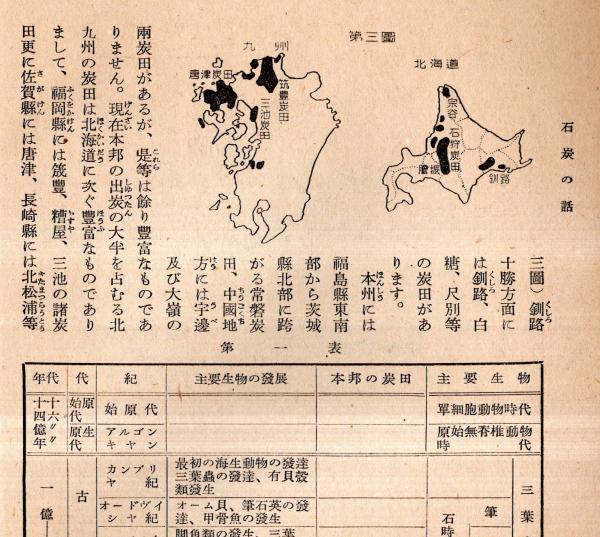 石炭の話
第三圖
北海道
宗谷
石狩炭田
膽振
釧路
九州
唐津炭田
筑豊炭田
三池炭田
三圖)釧路
十勝方面に
は釧路、白
糖、尺別等
の炭田があ
ります。
本州には
福島縣東南
部から茨城
縣北部に跨
がる常磐炭
田、中國地
方には宇邊
及び大嶺の
兩炭田があるが、是等は餘り豊富なものであ
りません。現在本邦の出炭の大半を占むる北
九州の炭田は北海道に次ぐ豊富なものであり
まして、福岡縣には筑豊、糟屋、三池の諸炭
田更に佐賀縣には唐津、長崎縣には北松浦等
第一表
年代 代 紀 主要生物の發展 本邦の炭田 主要生物
十六〃 十四億年 始原代 始原代 單細胞動物時代
原生代 アルゴンキヤン 原始無脊椎動物時代
一億 古 カンブリヤ紀 最初の海生動物の發達
三葉蟲の發達、有貝殼
類發生
三葉
オードヴイシヤ紀 オーム貝、筆石英の發
達、甲骨魚の發生
筆
石時
脚角類の發生、三葉